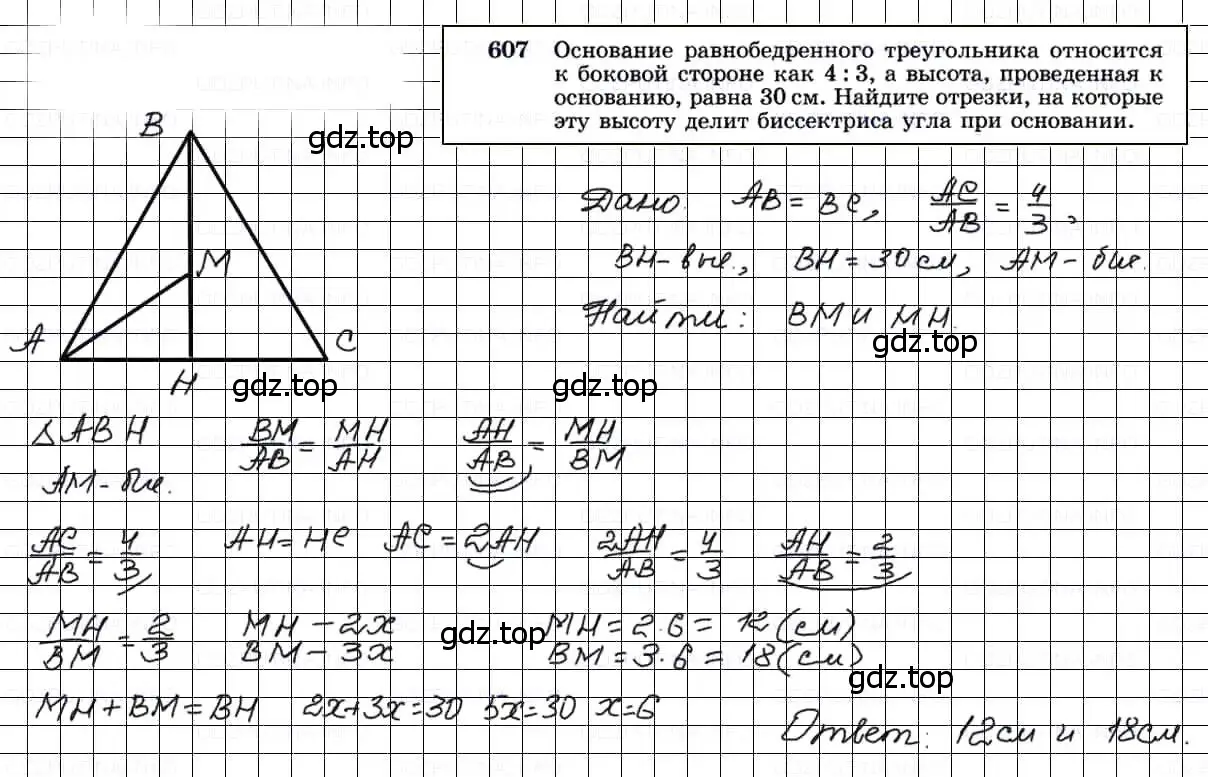 607 Основание равнобедренного треугольника относится
к боковой стороне как 4 : 3, а высота, проведенная к
основанию, равна 30 см. Найдите отрезки, на которые
эту высоту делит биссектриса угла при основании.
B
gdz.top
M
A
C
H
Дано: AB = BC, AC/AB = 4/3,
BH - выс., BH = 30 см, AM - бис.
Найти: BM и MH.
gdz.top
gdz.top
gdz.top
△ABH BM/AB = MH/AH, AH/AB = MH/BM
AM - бис.
AC/AB = 4/3 AH = HC AC = 2AH 2AH/AB = 4/3 AH/AB = 2/3
MH/BM = 2/3 MH - 2x MH = 2·6 = 12 (см)
BM - 3x BM = 3·6 = 18 (см)
gdz.top
gdz.top
MH + BM = BH 2x + 3x = 30 5x = 30 x = 6
Ответ: 12 см и 18 см.